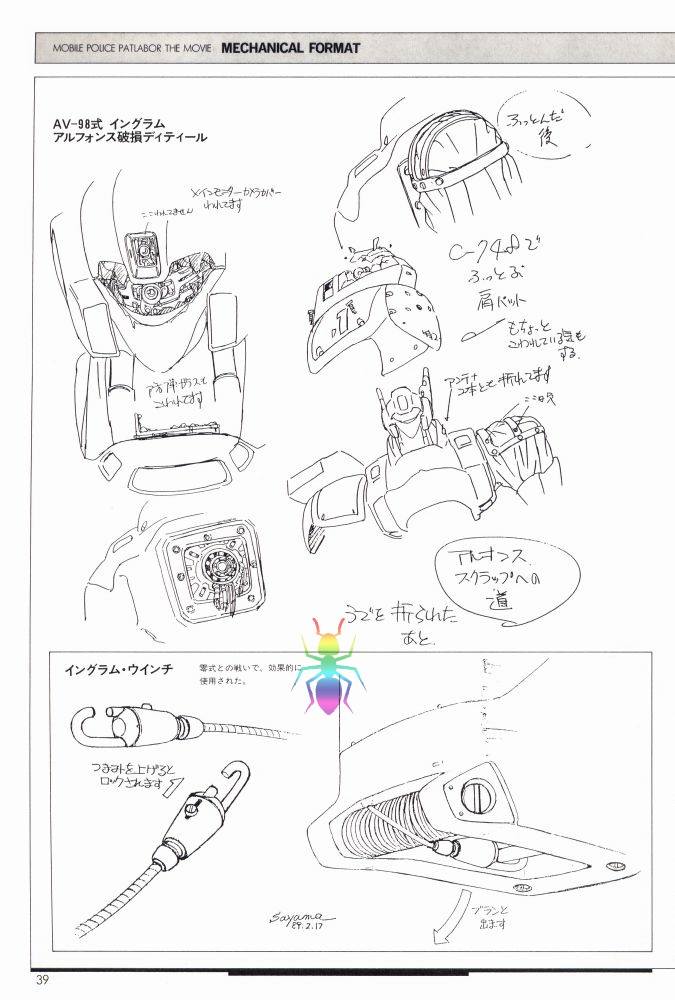 MOBILE POLICE PATLABOR THE MOVIE MECHANICAL FORMAT
AV-98式 イングラム
アルフォンス破損ディティール
ふっとんだ
後
メインモニターカメラカバー
われてます
ここわれてません
ふっとぶ
肩パット
もちょっと
こわれている気も
する。
アンテナ
2本とも折れてます
こわれてます
アルフォンス
スクラップへの
道
うでを折られた
あと。
イングラム・ウインチ
零式との戦いで、効果的に
使用された。
つまみを上げると
ロックされます
ブランと
出ます
Sayama
89.2.17
39